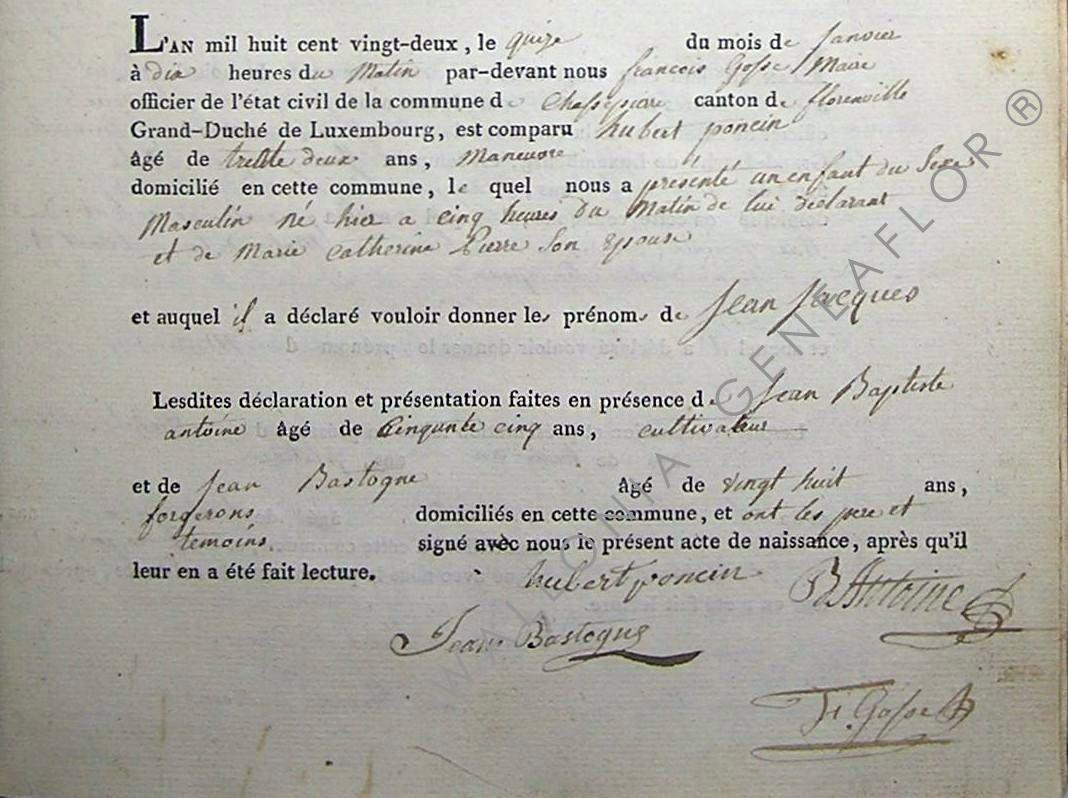 L'AN mil huit cent vingt-deux, le quize du mois de Janvier
à dix heures du Matin par-devant nous françois Gosse Maire
officier de l'état civil de la commune de Chassepierre canton de florenville
Grand-Duché de Luxembourg, est comparu hubert poncin
âgé de trente deux ans, Maneuvre
domicilié en cette commune, le quel nous a présenté un enfant du Sexe
Masculin né hier a cinq heures du Matin de lui déclarant
et de Marie Catherine Pierre Son Epouse
et auquel il a déclaré vouloir donner les prénoms de Jean Jacques
Lesdites déclaration et présentation faites en présence de Jean Baptiste
antoine âgé de Cinqunte cinq ans, cultivateur
et de Jean Bastogne âgé de vingt huit ans,
forgerons domiciliés en cette commune, et ont les pere et
temoins signé avec nous le présent acte de naissance, après qu'il
leur en a été fait lecture. hubert poncin B Antoine
Jean Bastogne
Fs. Gosse
WALLONIA GENEAFLOR ®